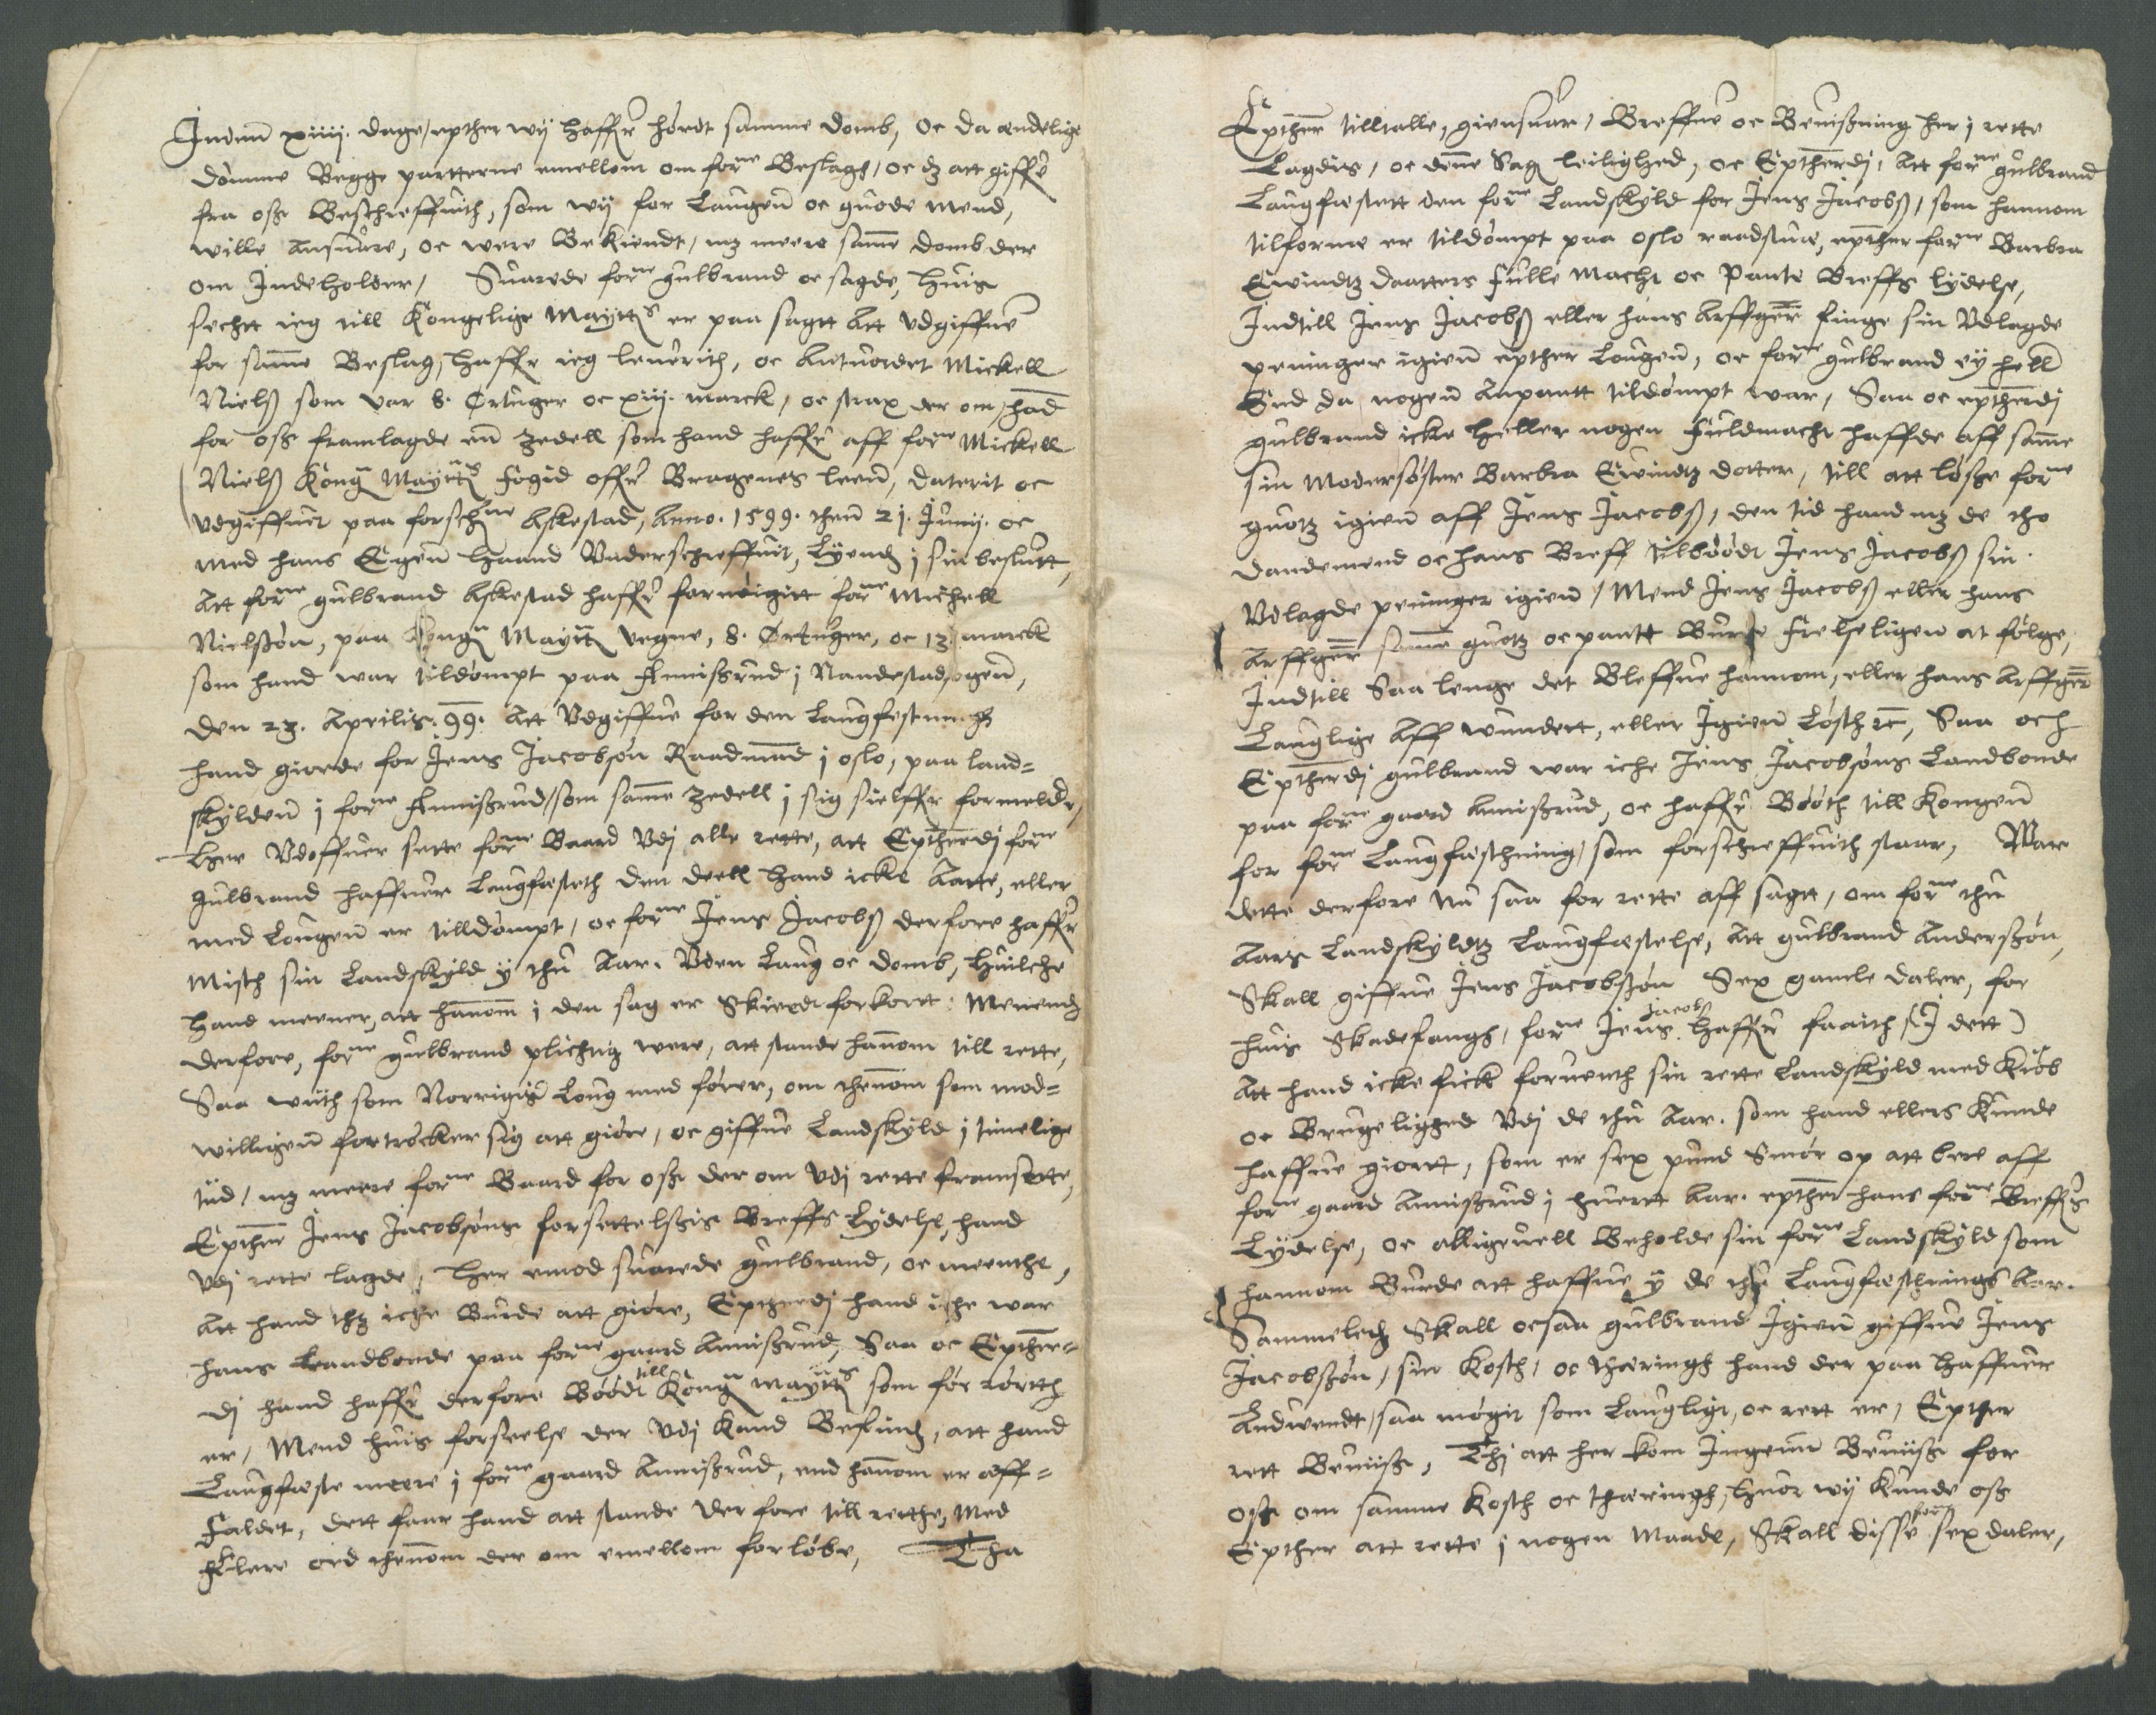 Indenn xiiij. dage, epther wij haffr hördt samme domb, oc da endelige
dömme Begge partterne emellom om forne Beslagh, oc dz att giffue
fra oss Beschreffuith, som wij for Laugenn oc guode mend,
wille Ansuare, oc were Bekiendt, mz meere samme domb der
om Indeholder, Suarede forne gulbrand oc sagde, huis
secht ieg till Kongelige Maytts er paa sagtt Att Vdgiffue
for samme Beslag, haffr ieg leuerith, oc Antuordet Mickell
Nielss som var 8. Ørtuger oc xiij. marck, oc strax der om, hand
for oss framlagde enn Zedell som hand haffr aff forne Mickell
Nielss Kong Maytts fogid offr Bragenes leenn, daterit oc
Vdgiffuet paa forschne Askestad, Anno. 1599. thenn 21. Junij. oc
med hans Egenn haand Vnderschreffuit, Lyendh i sin beslutt,
Att forne gulbrand Askestad haffr fornöigitt forne Michell
Nielssön, paa Kong Maytt vegne, 8. Ørtuger, oc 13 marck
som hand war tildömpt paa Annissrud i Nandestad sogenn,
den 23. Aprilis. 99. Att Vdgiffue for den Laugfestningh
hand giorde for Jens Jacobsön Raadmand i oslo, paa land=
skyldenn i forne Annissrud, som samme Zedell i sig sielffr formelder,
her Vdoffuer sette forne Baard Vdj alle rette, att Epttherdj forne
gulbrand haffuer Laugfesteth den deell hand icke Aatte, eller
med Lougenn er tilldömpt, oc forne Jens Jacobss derfore haffr
Misth sin Landskyld ij thu Aar. Vden Laug oc domb, huilche
hand meener, att hannom i den sag er Skieedt forkort: Menendh
derfore, forne gulbrand plichtig were, att stande hannom till rette,
Saa wiith som Norrigis Loug med förer, om thennom som mod=
willigenn fortröcker sig att giöre, oc giffue Landskyld i timelige
tiid, mz meere forne Baard for oss der om Vdj rette framsette,
Epther Jens Jacobsöns forsettelssis Breffs Lydelse, hand
Vdj rette lagde, her emod suarede gulbrand, oc meenthe,
Att hand thz icke Burde att giöre, Epttherdj hand iche war
hans Landbonde paa forne gaard Annissrud, Saa oc Epther=
dj hand haffr derforeBöödt till Kong maytts som för rörtth
er, Mend huis forseelse der Vdj kand Befindh, att hand
Laugfeste meere i forne gaard Annissrud, end hannom er aff=
faldet, dett faar hand att stande der fore till retthe, Med
flere ord thennom der om emellom forlöbe, Tha
Epther tilltalle, giensuar, Breffue oc Beuissning her i rette
Lagdis, oc denne Sag leilighed, oc Epttherdj, Att forne gulbrand
Laugfestett den forne Landskyld for Jens Jacobss, som hannom
tilforne er tildömpt paa oslo raadstue, epther forne Barbra
Eivindtz daatters fulle Macht oc Pante Breffs lydelse,
Indtill Jens Jacobss eller hans Arffger finge sin Vdlagde
peninger igienn epther Lougenn, oc forne gulbrand ey hell
End da nogenn Anpantt tildömpt war, Saa oc epttherdj
gulbrand icke heller nogen fuldmacht haffde aff samme
sin Modersöster Barbra Eivindtz dotter, till att lösse forne
guotz igienn aff Jens Jacobss, den tid hand mz de tho
dandemend oc hans Breff tilböödt Jens Jacobss sin
Vdlagde peninger igienn, Mend Jens Jacobss eller hans
Arffger samme guotz oc pantt Burde frelseligen at fölge,
Indtill Saa lenge det Bleffue hannom, eller hans Arffger
Lauglige Aff wundett, eller Igienn Lösth etc, Saa och
Epttherdj gulbrand war iche Jens Jacobsöns Landbonde
paa forne gaard Annissrud, oc haffr Bööth till Kongenn
for forne Laugfesthning, som forschreffuith staar, War
dette derfore nu saa for rette aff sagtt, om forne thu
Aars Landskyldtz Laugfestelse, Att gulbrand Anderssön,
Skall giffue Jens Jacobssön Sex gamle daler, for
huis Skadefangh, forne Jens Jacobss haffr faaith (I dett)
Att hand icke fick foruenth sin rette Landskyld med Kiöb
oc Brugelighed Vdj de thu Aar. som hand ellers kunde
haffue giortt, som er sex pund Smör op att bere aff
forne gaard Annissrud i huertt Aar. epther hans forne breffs
Lydelse, oc alligeuell Beholde sin forne Landskyld som
hannom Burde att haffue ij de thu Laugfesthnings Aar.
Sammeledh Skall ocsaa gulbrand Igienn giffue Jens
Jacobssön, sin Kosth, oc Theringh hand der paa haffuer
Anduendt, saa mögit som Laugligt, oc rett er, Epther
rett Beuiiss, Thj att her kom Ingenn Beuiiss for
oss om samme Kosth oc Theringh, huor wij kunde oss
Epther att rette i nogen Maade, Skall disse forne sex daler,